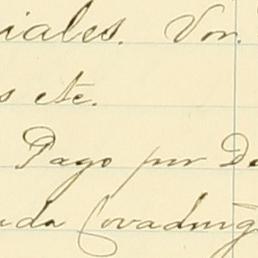 iales. Vor.
s etc.
Pago por De
ada Covadong